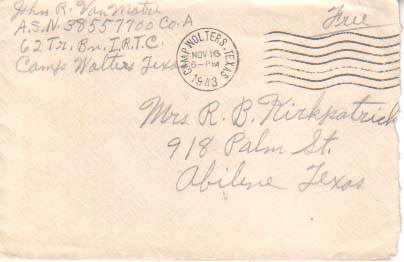 John R. Van Matre
A.S.N. 38557700 Co. A
62 Tr. Bn. I.R.T.C.
Camp Wolters Texas
Free
CAMP WOLTERS, TEXAS
NOV 16
6-PM
1943
Mrs R. B. Kirkpatrick
918 Palm St.
Abilene Texas